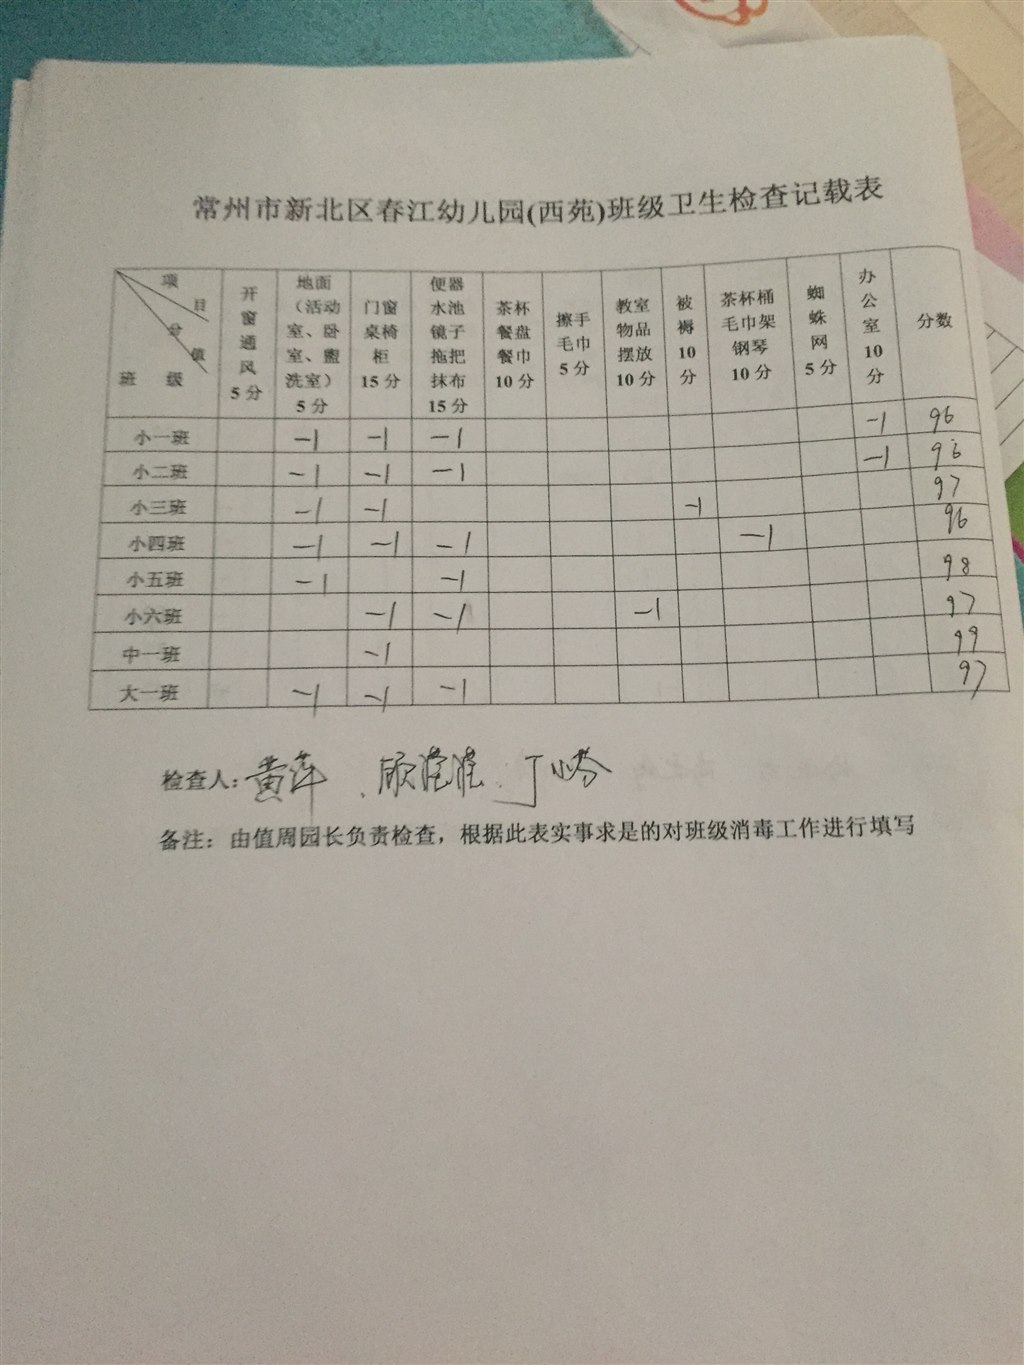 常州市新北区春江幼儿园(西苑)班级卫生检查记载表
项目 分值 班级 开窗通风5分 地面（活动室、卧室、盥洗室）5分 门窗桌椅柜15分 便器水池镜子拖把抹布15分 茶杯餐盘餐巾10分 擦手毛巾5分 教室物品摆放10分 被褥10分 茶杯桶毛巾架钢琴10分 蜘蛛网5分 办公室10分 分数
小一班 -1 -1 -1 -1 96
小二班 -1 -1 -1 -1 96
小三班 -1 -1 -1 97
小四班 -1 -1 -1 -1 96
小五班 -1 -1 98
小六班 -1 -1 -1 97
中一班 -1 99
大一班 -1 -1 -1 97
检查人：黄萍
备注：由值周园长负责检查，根据此表实事求是的对班级消毒工作进行填写